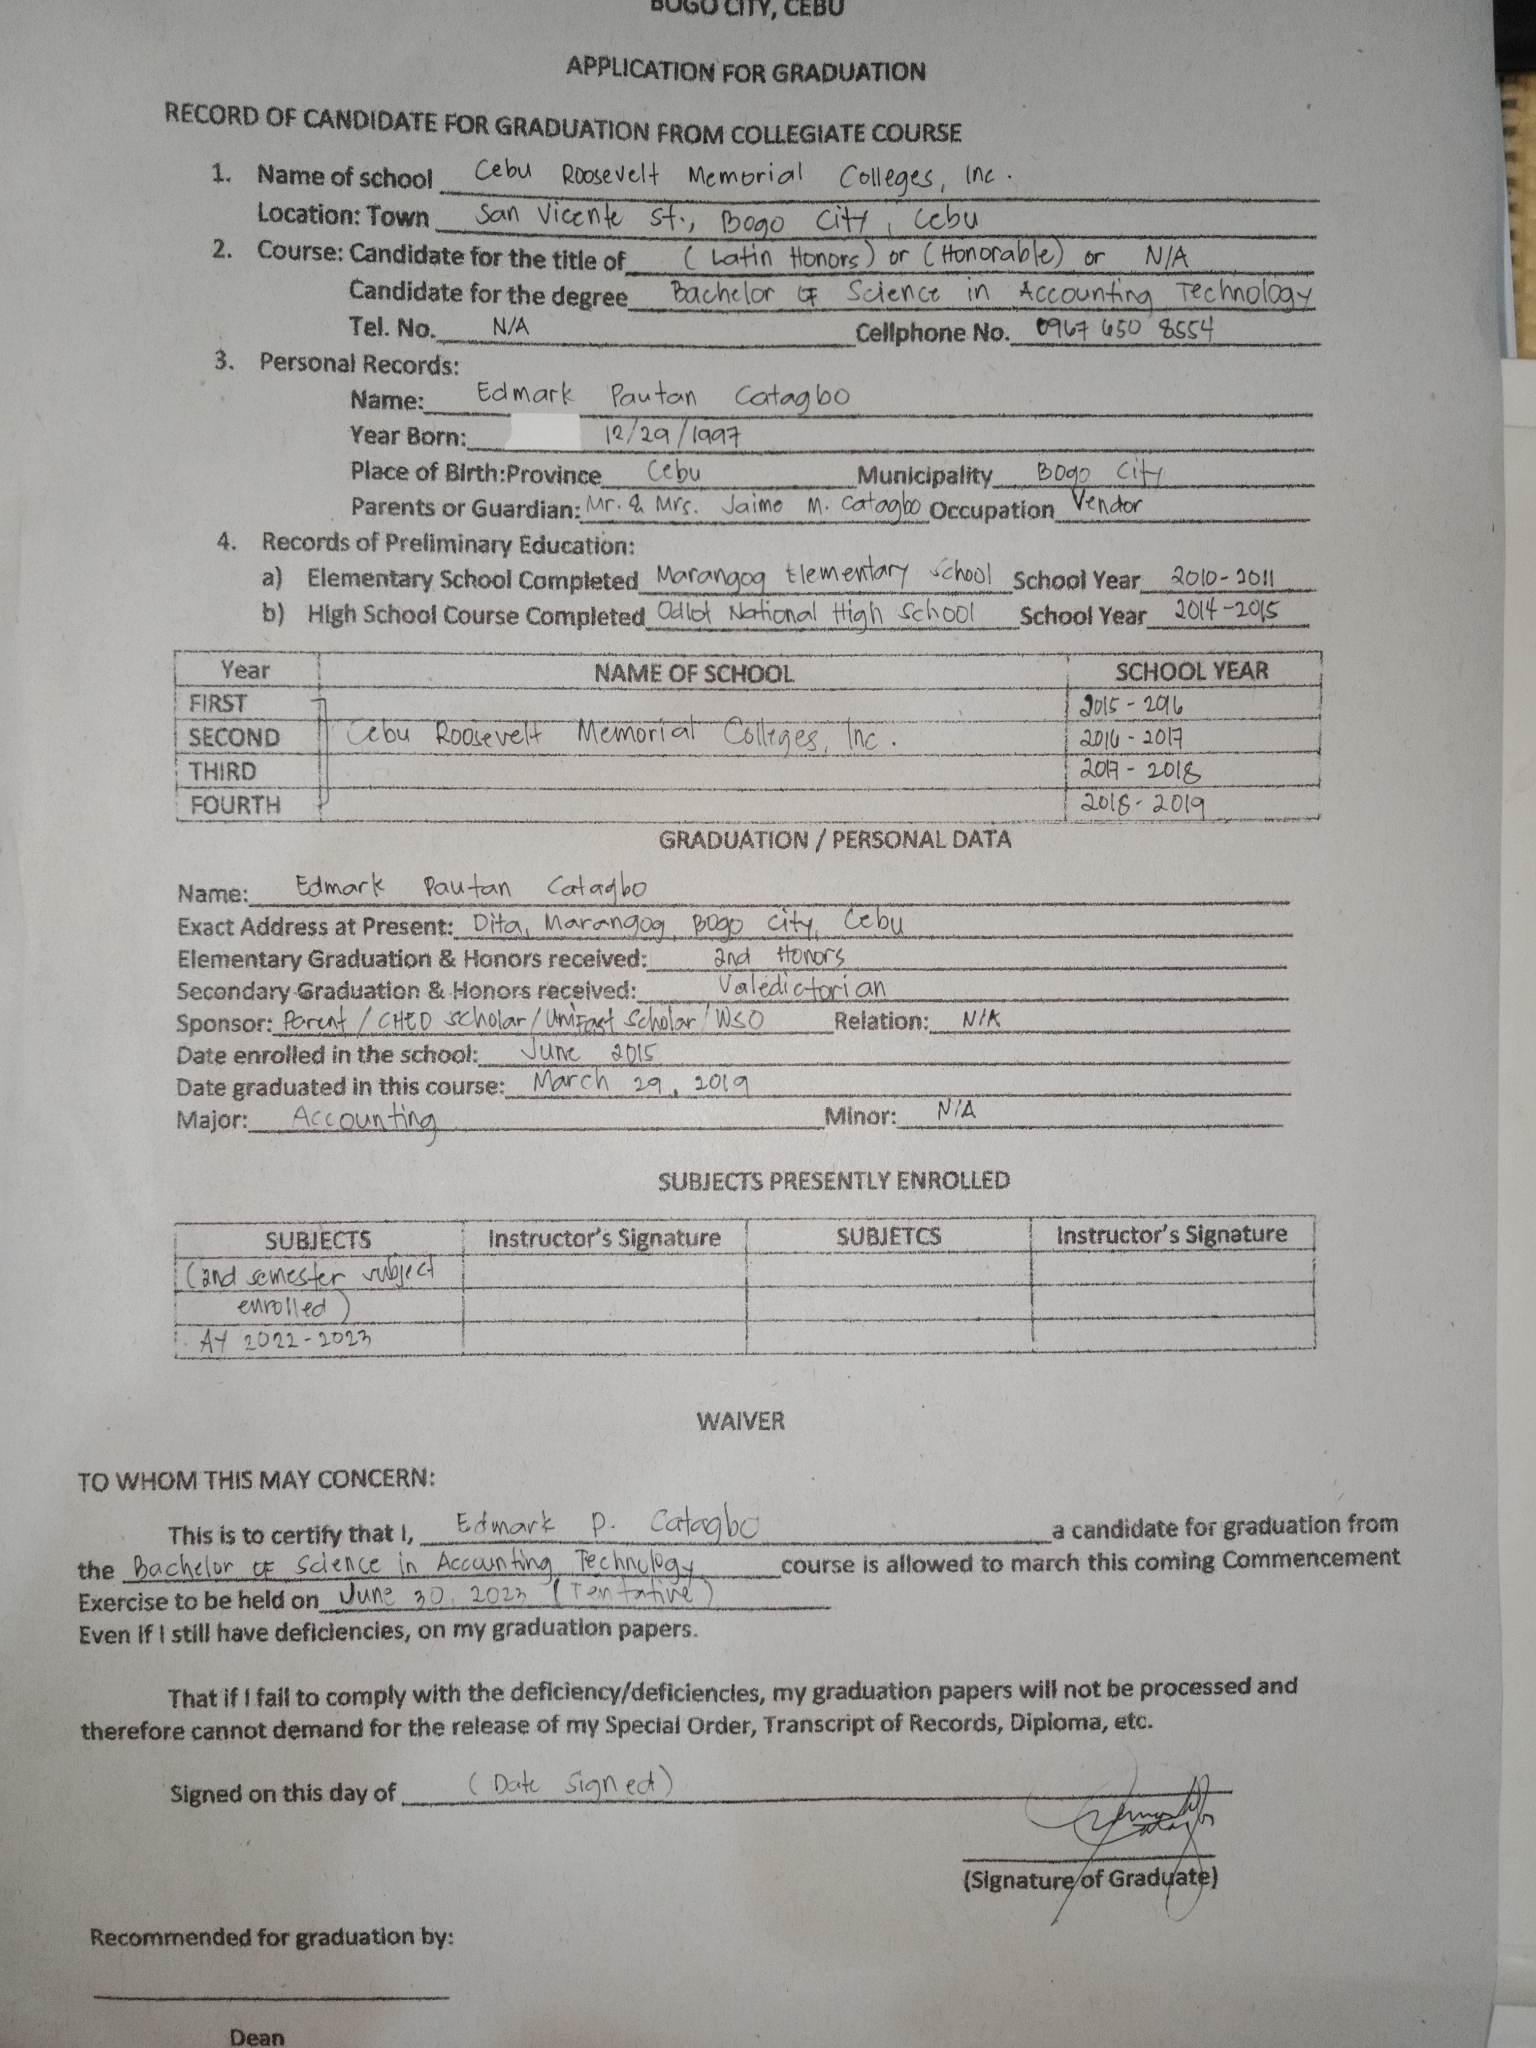 BOGO CITY, CEBU
APPLICATION FOR GRADUATION
RECORD OF CANDIDATE FOR GRADUATION FROM COLLEGIATE COURSE
1. Name of school Cebu Roosevelt Memorial Colleges, Inc.
Location: Town San Vicente St., Bogo City, Cebu
2. Course: Candidate for the title of (Latin Honors) or (Honorable) or N/A
Candidate for the degree Bachelor of Science in Accounting Technology
Tel. No. N/A Cellphone No. 0967 650 8554
3. Personal Records:
Name: Edmark Pautan Catagbo
Year Born: 12/29/1997
Place of Birth:Province Cebu Municipality Bogo City
Parents or Guardian: Mr. & Mrs. Jaime M. Catagbo Occupation Vendor
4. Records of Preliminary Education:
a) Elementary School Completed Marangog Elementary School School Year 2010-2011
b) High School Course Completed Odlot National High School School Year 2014-2015
Year NAME OF SCHOOL SCHOOL YEAR
FIRST 2015-2016
SECOND Cebu Roosevelt Memorial Colleges, Inc. 2016-2017
THIRD 2017-2018
FOURTH 2018-2019
GRADUATION / PERSONAL DATA
Name: Edmark Pautan Catagbo
Exact Address at Present: Dita, Marangog, Bogo City, Cebu
Elementary Graduation & Honors received: 2nd Honors
Secondary Graduation & Honors received: Valedictorian
Sponsor: Parent / CHED Scholar / UniFast Scholar / WSO Relation: N/A
Date enrolled in the school: June 2015
Date graduated in this course: March 29, 2019
Major: Accounting Minor: N/A
SUBJECTS PRESENTLY ENROLLED
SUBJECTS Instructor's Signature SUBJETCS Instructor's Signature
(2nd semester subject
enrolled)
AY 2022-2023
WAIVER
TO WHOM THIS MAY CONCERN:
This is to certify that I, Edmark P. Catagbo a candidate for graduation from
the Bachelor of Science in Accounting Technology course is allowed to march this coming Commencement
Exercise to be held on June 30, 2023 (Tentative)
Even if I still have deficiencies, on my graduation papers.
That if I fail to comply with the deficiency/deficiencies, my graduation papers will not be processed and
therefore cannot demand for the release of my Special Order, Transcript of Records, Diploma, etc.
Signed on this day of (Date Signed)
(Signature of Graduate)
Recommended for graduation by:
Dean